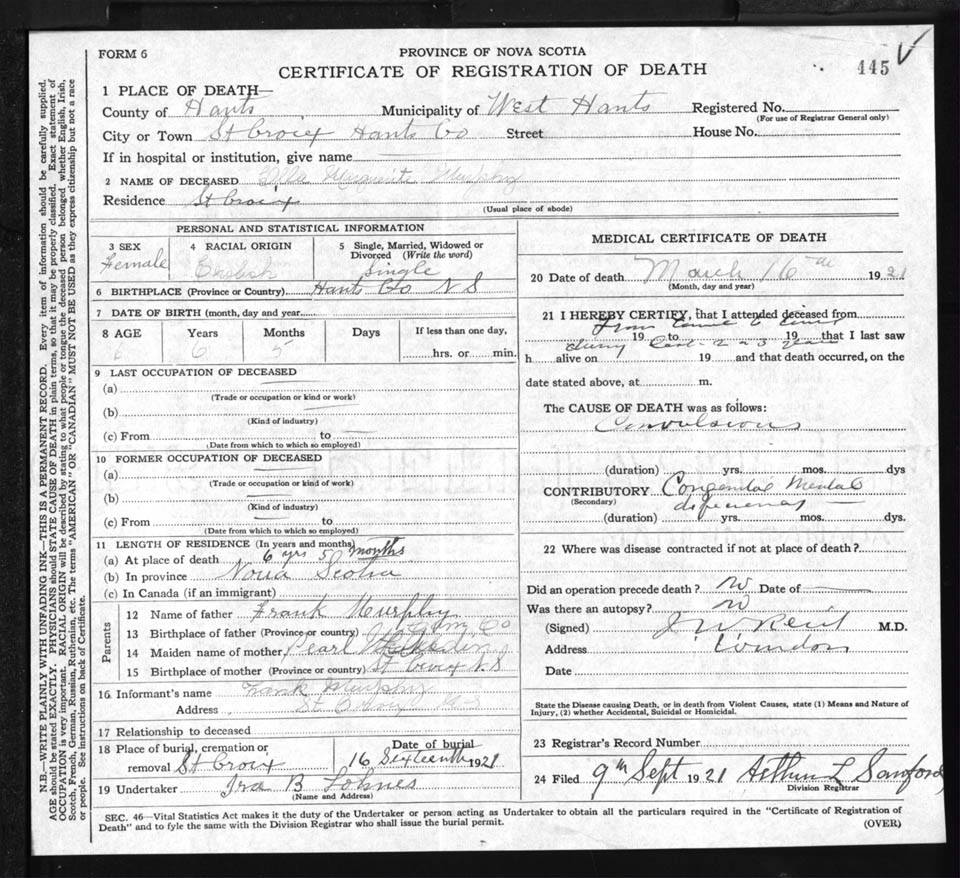 FORM 6
PROVINCE OF NOVA SCOTIA
CERTIFICATE OF REGISTRATION OF DEATH
445
1 PLACE OF DEATH—
County of Hants Municipality of West Hants Registered No.
(For use of Registrar General only)
City or Town St Croix Hants Co Street House No.
If in hospital or institution, give name
2 NAME OF DECEASED Marguerite Murphy
Residence St Croix
(Usual place of abode)
PERSONAL AND STATISTICAL INFORMATION
3 SEX 4 RACIAL ORIGIN 5 Single, Married, Widowed or Divorced (Write the word)
Female English Single
6 BIRTHPLACE (Province or Country) Hants Co N S
7 DATE OF BIRTH (month, day and year)
8 AGE Years Months Days If less than one day,
6 6 5 hrs. or min.
9 LAST OCCUPATION OF DECEASED
(a)
(Trade or occupation or kind or work)
(b)
(Kind of industry)
(c) From to
(Date from which to which so employed)
10 FORMER OCCUPATION OF DECEASED
(a)
(Trade or occupation or kind of work)
(b)
(Kind of industry)
(c) From to
(Date from which to which so employed)
11 LENGTH OF RESIDENCE (In years and months)
(a) At place of death 6 yrs 5 months
(b) In province Nova Scotia
(c) In Canada (if an immigrant)
Parents
12 Name of father Frank Murphy
13 Birthplace of father (Province or country) Co
14 Maiden name of mother Pearl
15 Birthplace of mother (Province or country) St Croix N S
16 Informant's name Frank Murphy
Address St Croix N S
17 Relationship to deceased
18 Place of burial, cremation or removal St Croix
Date of burial
16 Sixteenth 1921
19 Undertaker Ira B Lohnes
(Name and Address)
MEDICAL CERTIFICATE OF DEATH
20 Date of death March 16th 1921
(Month, day and year)
21 I HEREBY CERTIFY, that I attended deceased from
from time to time
19 to 19 that I last saw
during last 2 or 3 years
h alive on 19 and that death occurred, on the
date stated above, at m.
The CAUSE OF DEATH was as follows:
Convulsions
(duration) yrs. mos. dys
CONTRIBUTORY Congenital Mental
(Secondary)
(duration) yrs. mos. dys.
22 Where was disease contracted if not at place of death?
Did an operation precede death? no Date of
Was there an autopsy? no
(Signed) J W Reid M.D.
Address Windsor
Date
State the Disease causing Death, or in death from Violent Causes, state (1) Means and Nature of
Injury, (2) whether Accidental, Suicidal or Homicidal.
23 Registrar's Record Number
24 Filed 9th Sept 1921 Arthur L Sanford
Division Registrar
SEC. 46—Vital Statistics Act makes it the duty of the Undertaker or person acting as Undertaker to obtain all the particulars required in the "Certificate of Registration of
Death" and to fyle the same with the Division Registrar who shall issue the burial permit.
(OVER)
N.B.—WRITE PLAINLY WITH UNFADING INK—THIS IS A PERMANENT RECORD. Every item of information should be carefully supplied.
AGE should be stated EXACTLY. PHYSICIANS should STATE CAUSE OF DEATH in plain terms, so that it may be properly classified. Exact statement of
OCCUPATION is very important. RACIAL ORIGIN will be described by stating to what people or tongue the deceased person belonged whether English, Irish,
Scotch, French, German, Russian, Ruthenian, etc. The terms "AMERICAN" or "CANADIAN" MUST NOT BE USED as they express citizenship but not a race
or people. See instructions on back of Certificate.